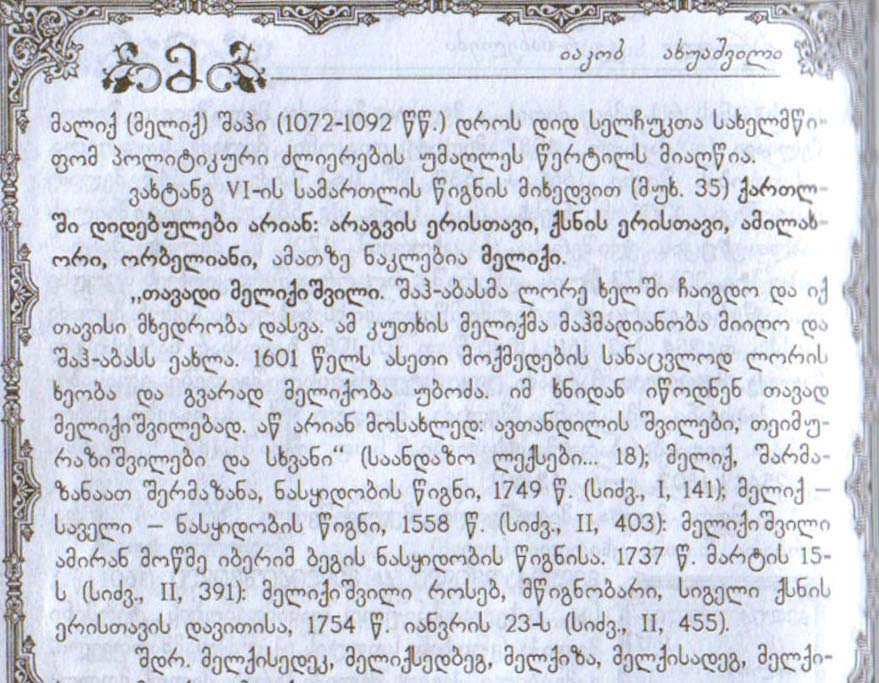 იაკობ ახუაშვილი
მ
მალიქ (მელიქ) შაჰი (1072-1092 წწ.) დროს დიდ სელჩუკთა სახელმწი-
ფომ პოლიტიკური ძლიერების უმაღლეს წერტილს მიაღწია.
ვახტანგ VI-ის სამართლის წიგნის მიხედვით (მუხ. 35) ქართლ-
ში დიდებულები არიან: არაგვის ერისთავი, ქსნის ერისთავი, ამილახ-
ორი, ორბელიანი, ამათზე ნაკლებია მელიქი.
„თავადი მელიქიშვილი. შაჰ-აბასმა ლორე ხელში ჩაიგდო და იქ
თავისი მხედრობა დასვა. ამ კუთხის მელიქმა მაჰმადიანობა მიიღო და
შაჰ-აბასს ეახლა. 1601 წელს ასეთი მოქმედების სანაცვლოდ ლორის
ხეობა და გვარად მელიქობა უბოძა. იმ ხნიდან იწოდნენ თავად
მელიქიშვილებად. აწ არიან მოსახლედ: ავთანდილის შვილები, თეიმუ-
რაზიშვილები და სხვანი“ (საანდაზო ლექსები... 18); მელიქ, შარმა-
ზანაათ შერმაზანა, ნასყიდობის წიგნი, 1749 წ. (სიძვ., I, 141); მელიქ –
საველი – ნასყიდობის წიგნი, 1558 წ. (სიძვ., II, 403): მელიქიშვილი
ამირან მოწმე იბერიმ ბეგის ნასყიდობის წიგნისა. 1737 წ. მარტის 15-
ს (სიძვ., II, 391): მელიქიშვილი როსებ, მწიგნობარი, სიგელი ქსნის
ერისთავის დავითისა, 1754 წ. იანვრის 23-ს (სიძვ., II, 455).
შდრ. მელქისედეკ, მელიქსედბეგ, მელქიზა, მელქისადეგ, მელქი-